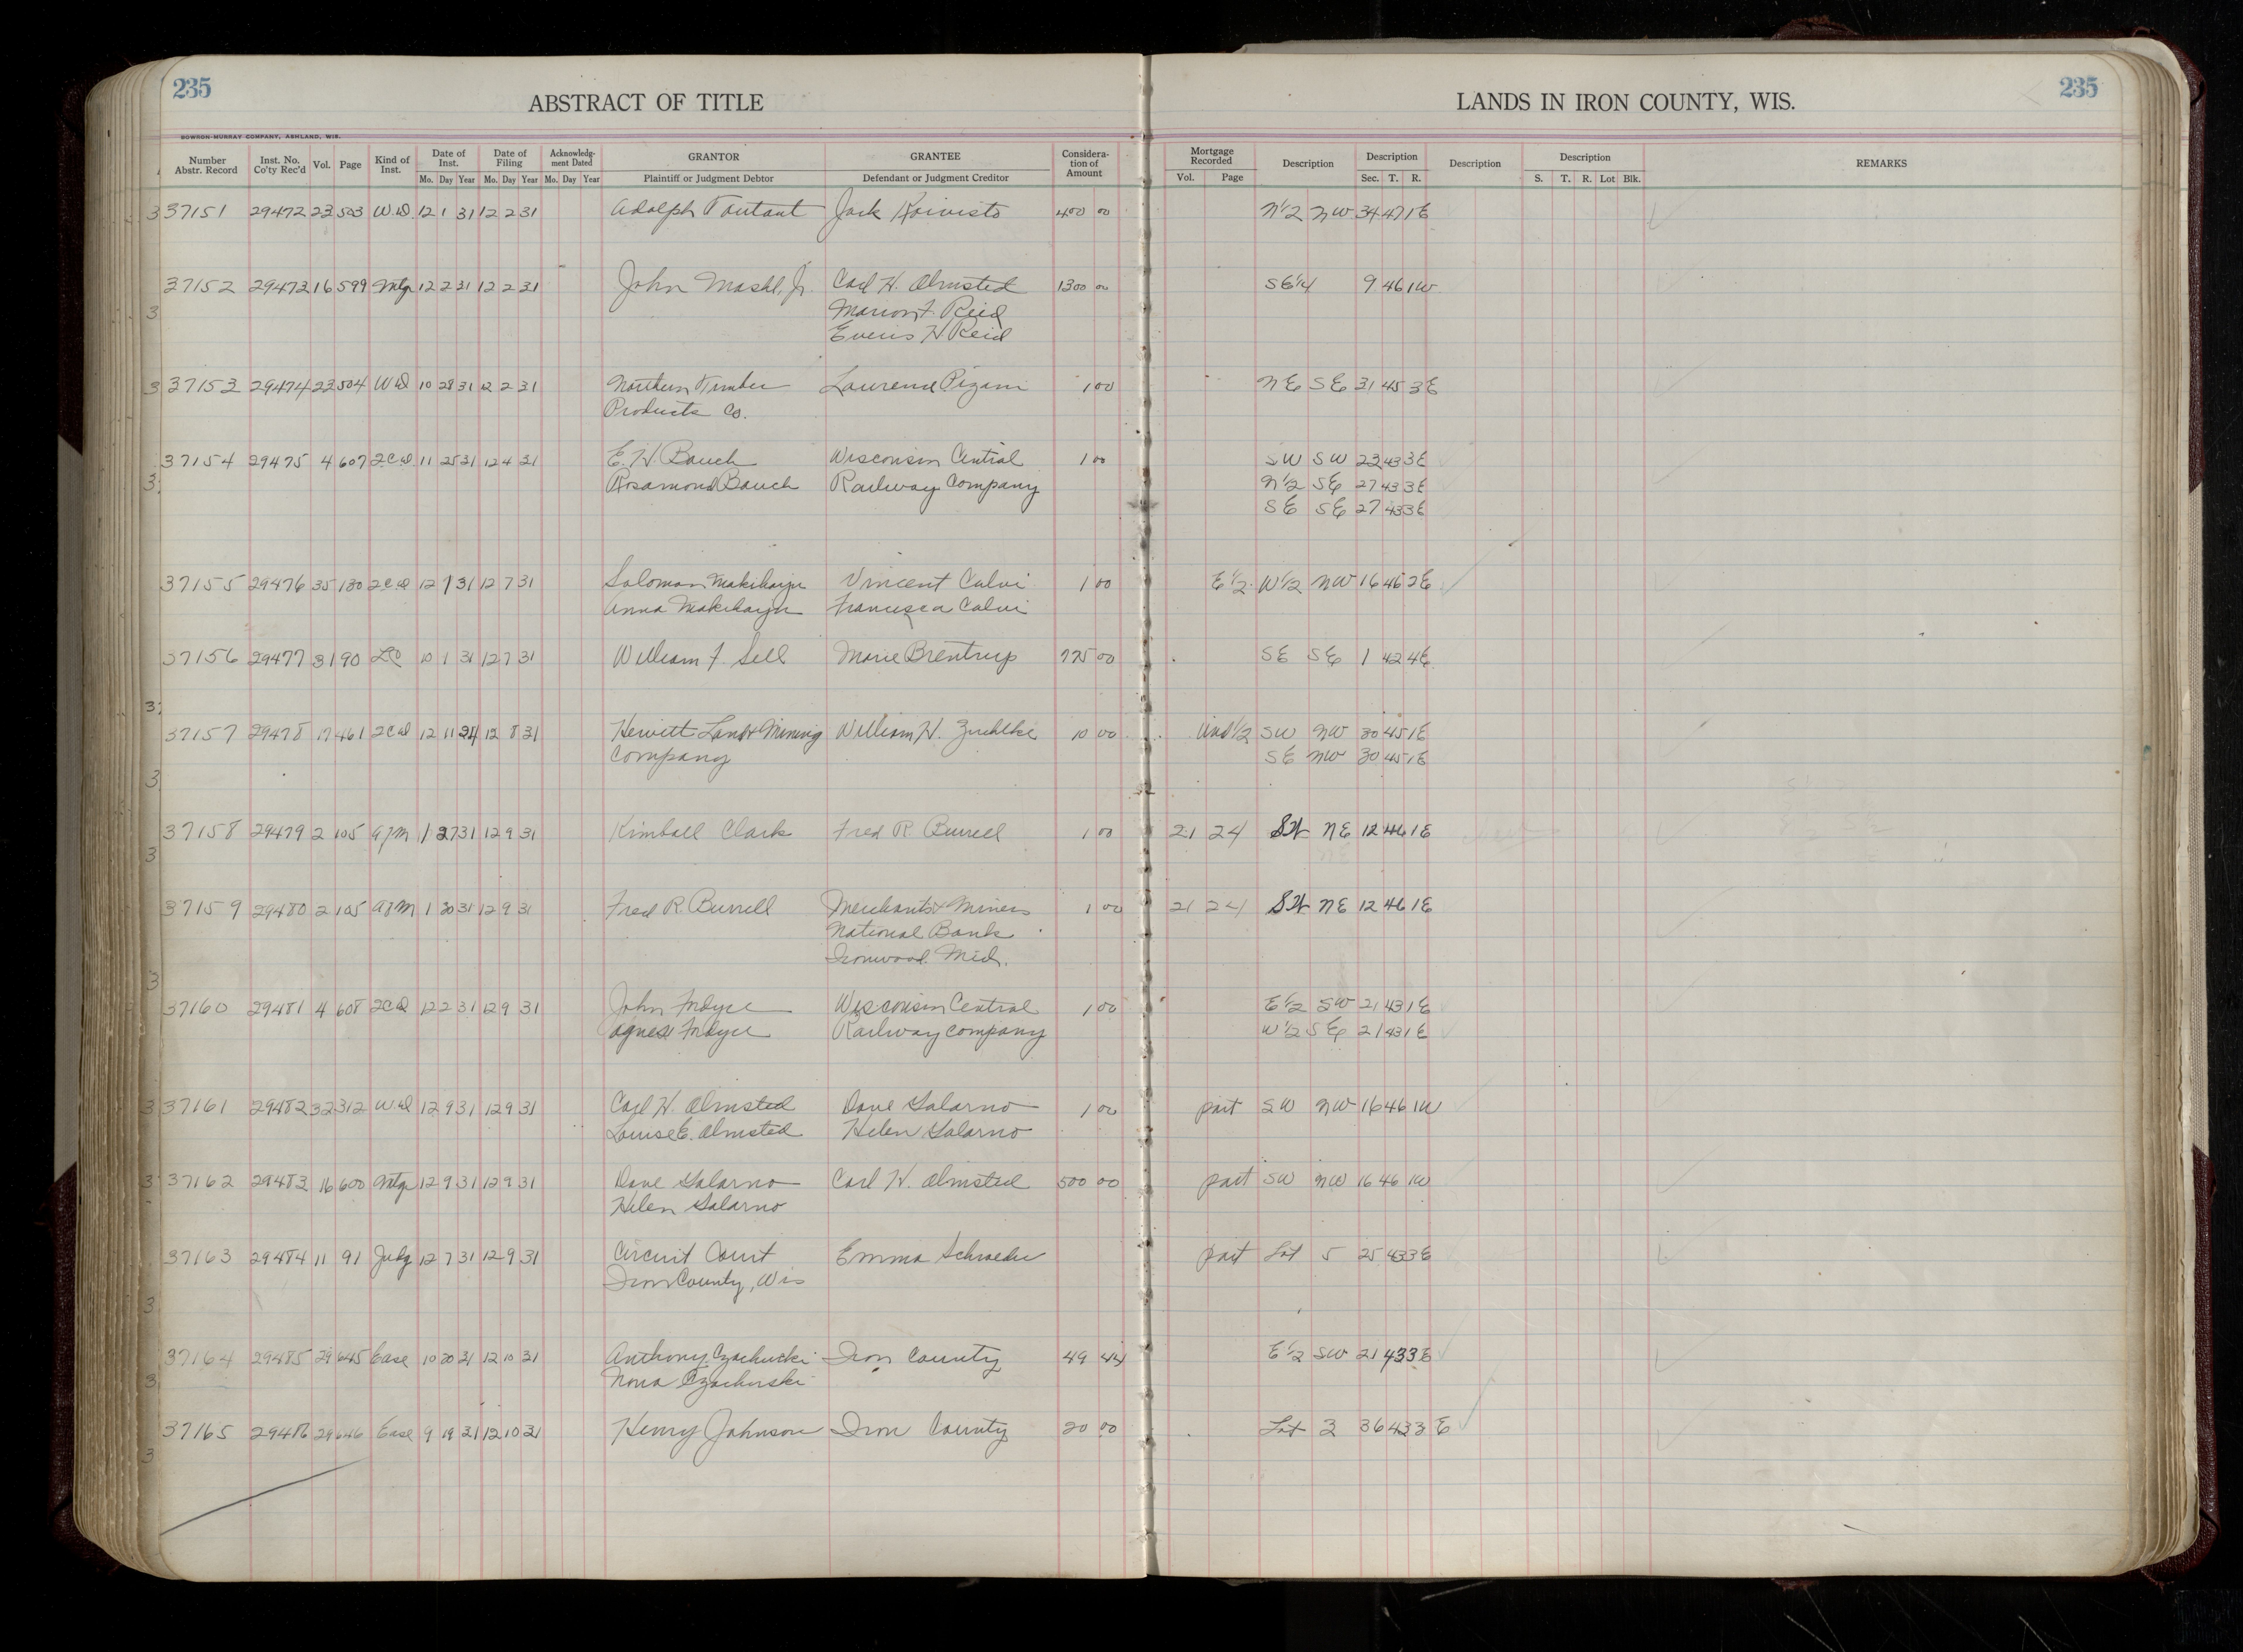 235
ABSTRACT OF TITLE
LANDS IN IRON COUNTY, WIS.
235
BOWRON-MURRAY COMPANY, ASHLAND, WIS.
Number Abstr. Record Inst. No. Co'ty Rec'd Vol. Page Kind of Inst. Date of Inst. Date of Filing Acknowledgment Dated GRANTOR GRANTEE Consideration of Amount Mortgage Recorded Description Description Description Description REMARKS
Mo. Day Year Mo. Day Year Mo. Day Year Plaintiff or Judgment Debtor Defendant or Judgment Creditor Vol. Page Sec. T. R. S. T. R. Lot Blk.
37151 29472 23 503 W.D. 12 1 31 12 2 31 Adolph Toutant Jack Koivisto 400 00 N1/2 NW 34 47 1E
37152 29473 16 599 Mtg 12 2 31 12 2 31 John Mashl, Jr. Carl H. Olmsted 1300 00 SE1/4 9 46 1W
Marion F. Reid
H Reid
37153 29474 23 504 WD 10 28 31 12 2 31 Northern Timber Laurence Pizani 1 00 NE SE 31 45 3E
Products Co.
37154 29475 4 607 2CD 11 25 31 12 4 31 E. H. Bauch Wisconsin Central 1 00 SW SW 23 43 3E
Rosamond Bauch Railway Company N1/2 SE 27 43 3E
SE SE 27 43 3E
37155 29476 35 180 2CD 12 7 31 12 7 31 Soloman Makiharju Vincent Calvi 1 00 E1/2 W1/2 NW 16 46 2E
Anna Makiharju Francesca Calvi
37156 29477 31 90 LC 10 1 31 12 7 31 William F. Sell Marie Brentrup 775 00 SE SE 1 42 4E
37157 29478 17 461 2CD 12 11 24 12 8 31 Hewitt Land & Mining William H. Zuehlke 10 00 Und1/2 SW NW 30 45 1E
Company SE NW 30 45 1E
37158 29479 2 105 AfM 1 27 31 12 9 31 Kimball Clark Fred R. Burrell 1 00 21 24 NE 12 46 1E
37159 29480 2 105 AfM 1 30 31 12 9 31 Fred R. Burrell Merchants & Miners 1 00 21 24 NE 12 46 1E
National Bank
Ironwood Mich.
37160 29481 4 608 2CD 12 2 31 12 9 31 John Wisconsin Central 1 00 E1/2 SW 21 43 1E
Agnes Railway Company W1/2 SE 21 43 1E
37161 29482 32 312 W.D. 12 9 31 12 9 31 Carl H. Olmsted Dave Salarno 1 00 part SW NW 16 46 1W
Louise E. Olmsted Helen Salarno
37162 29483 16 600 Mtg 12 9 31 12 9 31 Dave Salarno Carl H. Olmsted 500 00 part SW NW 16 46 1W
Helen Salarno
37163 29484 11 91 Judg 12 7 31 12 9 31 Circuit Court Emma Schroeder part Lot 5 25 43 3E
Iron County, Wis
37164 29485 29 645 Ease 10 20 31 12 10 31 Anthony Iron County 49 44 E1/2 SW 21 43 3E
Nona
37165 29486 29 646 Ease 9 19 31 12 10 31 Henry Johnson Iron County 20 00 Lot 3 36 43 3 E